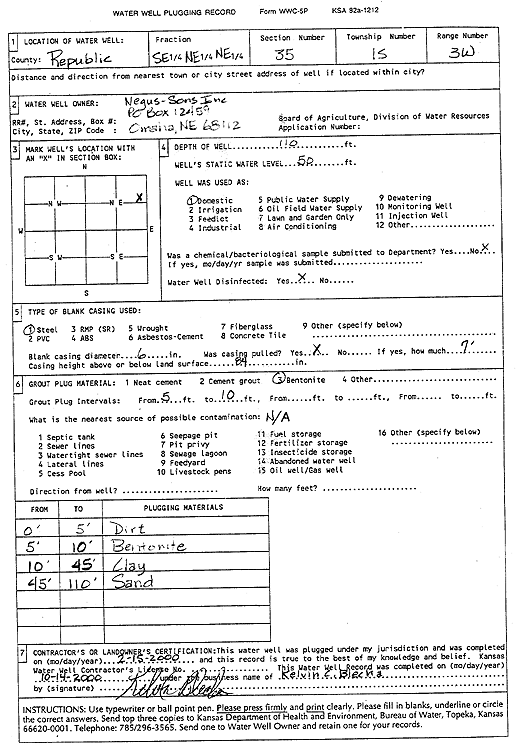 WATER WELL PLUGGING RECORD Form WWC-5P KSA 82a-1212
1 LOCATION OF WATER WELL: Fraction Section Number Township Number Range Number
County: Republic SE1/4 NE1/4 NE1/4 35 1S 3W
Distance and direction from nearest town or city street address of well if located within city?
2 WATER WELL OWNER: Negus-Sons Inc
PO Box 12459
RR#, St. Address, Box #: Board of Agriculture, Division of Water Resources
City, State, ZIP Code : Omaha, NE 68112 Application Number:
3 MARK WELL'S LOCATION WITH
AN "X" IN SECTION BOX:
N
N W N E X
W E
S W S E
S
4 DEPTH OF WELL.....110.....ft.
WELL'S STATIC WATER LEVEL..50..ft.
WELL WAS USED AS:
1 Domestic 5 Public Water Supply 9 Dewatering
2 Irrigation 6 Oil Field Water Supply 10 Monitoring Well
3 Feedlot 7 Lawn and Garden Only 11 Injection Well
4 Industrial 8 Air Conditioning 12 Other...........
Was a chemical/bacteriological sample submitted to Department? Yes....No.X
If yes, mo/day/yr sample was submitted..................
Water Well Disinfected: Yes..X.. No......
5 TYPE OF BLANK CASING USED:
1 Steel 3 RMP (SR) 5 Wrought 7 Fiberglass 9 Other (specify below)
2 PVC 4 ABS 6 Asbestos-Cement 8 Concrete Tile ..........................
Blank casing diameter...6....in. Was casing pulled? Yes..X.. No...... If yes, how much...7'...
Casing height above or below land surface.....84........in.
6 GROUT PLUG MATERIAL: 1 Neat cement 2 Cement grout 3 Bentonite 4 Other...................
Grout Plug Intervals: From..5..ft. to..10..ft., From......ft. to ......ft., From...... to......ft.
What is the nearest source of possible contamination: N/A
1 Septic tank 6 Seepage pit 11 Fuel storage 16 Other (specify below)
2 Sewer lines 7 Pit privy 12 Fertilizer storage ......................
3 Watertight sewer lines 8 Sewage lagoon 13 Insecticide storage
4 Lateral lines 9 Feedyard 14 Abandoned water well
5 Cess Pool 10 Livestock pens 15 Oil well/Gas well
Direction from well? .................... How many feet? ....................
FROM TO PLUGGING MATERIALS
0' 5' Dirt
5' 10' Bentonite
10' 45' Clay
45' 110' Sand
7 CONTRACTOR'S OR LANDOWNER'S CERTIFICATION:This water well was plugged under my jurisdiction and was completed
on (mo/day/year)...2-15-2000.... and this record is true to the best of my knowledge and belief. Kansas
Water Well Contractor's License No. .............. This Water Well Record was completed on (mo/day/year)
10-14-2000 under the business name of Kelvin C. Blecha
by (signature) Kelvin Blecha
INSTRUCTIONS: Use typewriter or ball point pen. Please press firmly and print clearly. Please fill in blanks, underline or circle
the correct answers. Send top three copies to Kansas Department of Health and Environment, Bureau of Water, Topeka, Kansas
66620-0001. Telephone: 785/296-3565. Send one to Water Well Owner and retain one for your records.